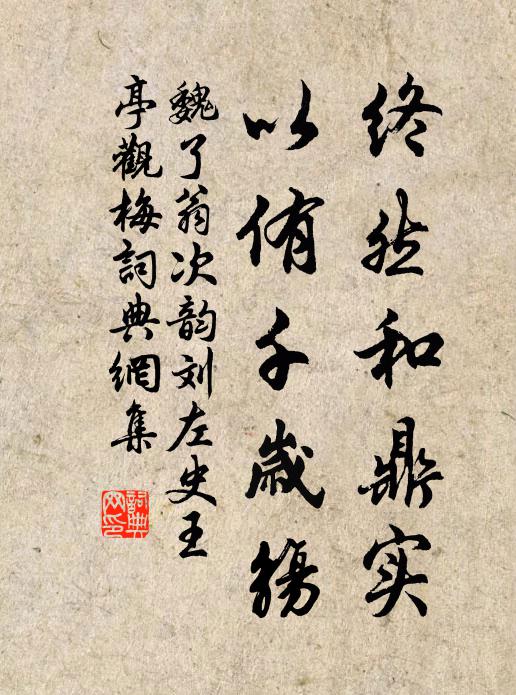 终然和鼎实
以侑千岁觞
魏了翁次韵刘左史王
亭觀梅詞典網集
詞典网印